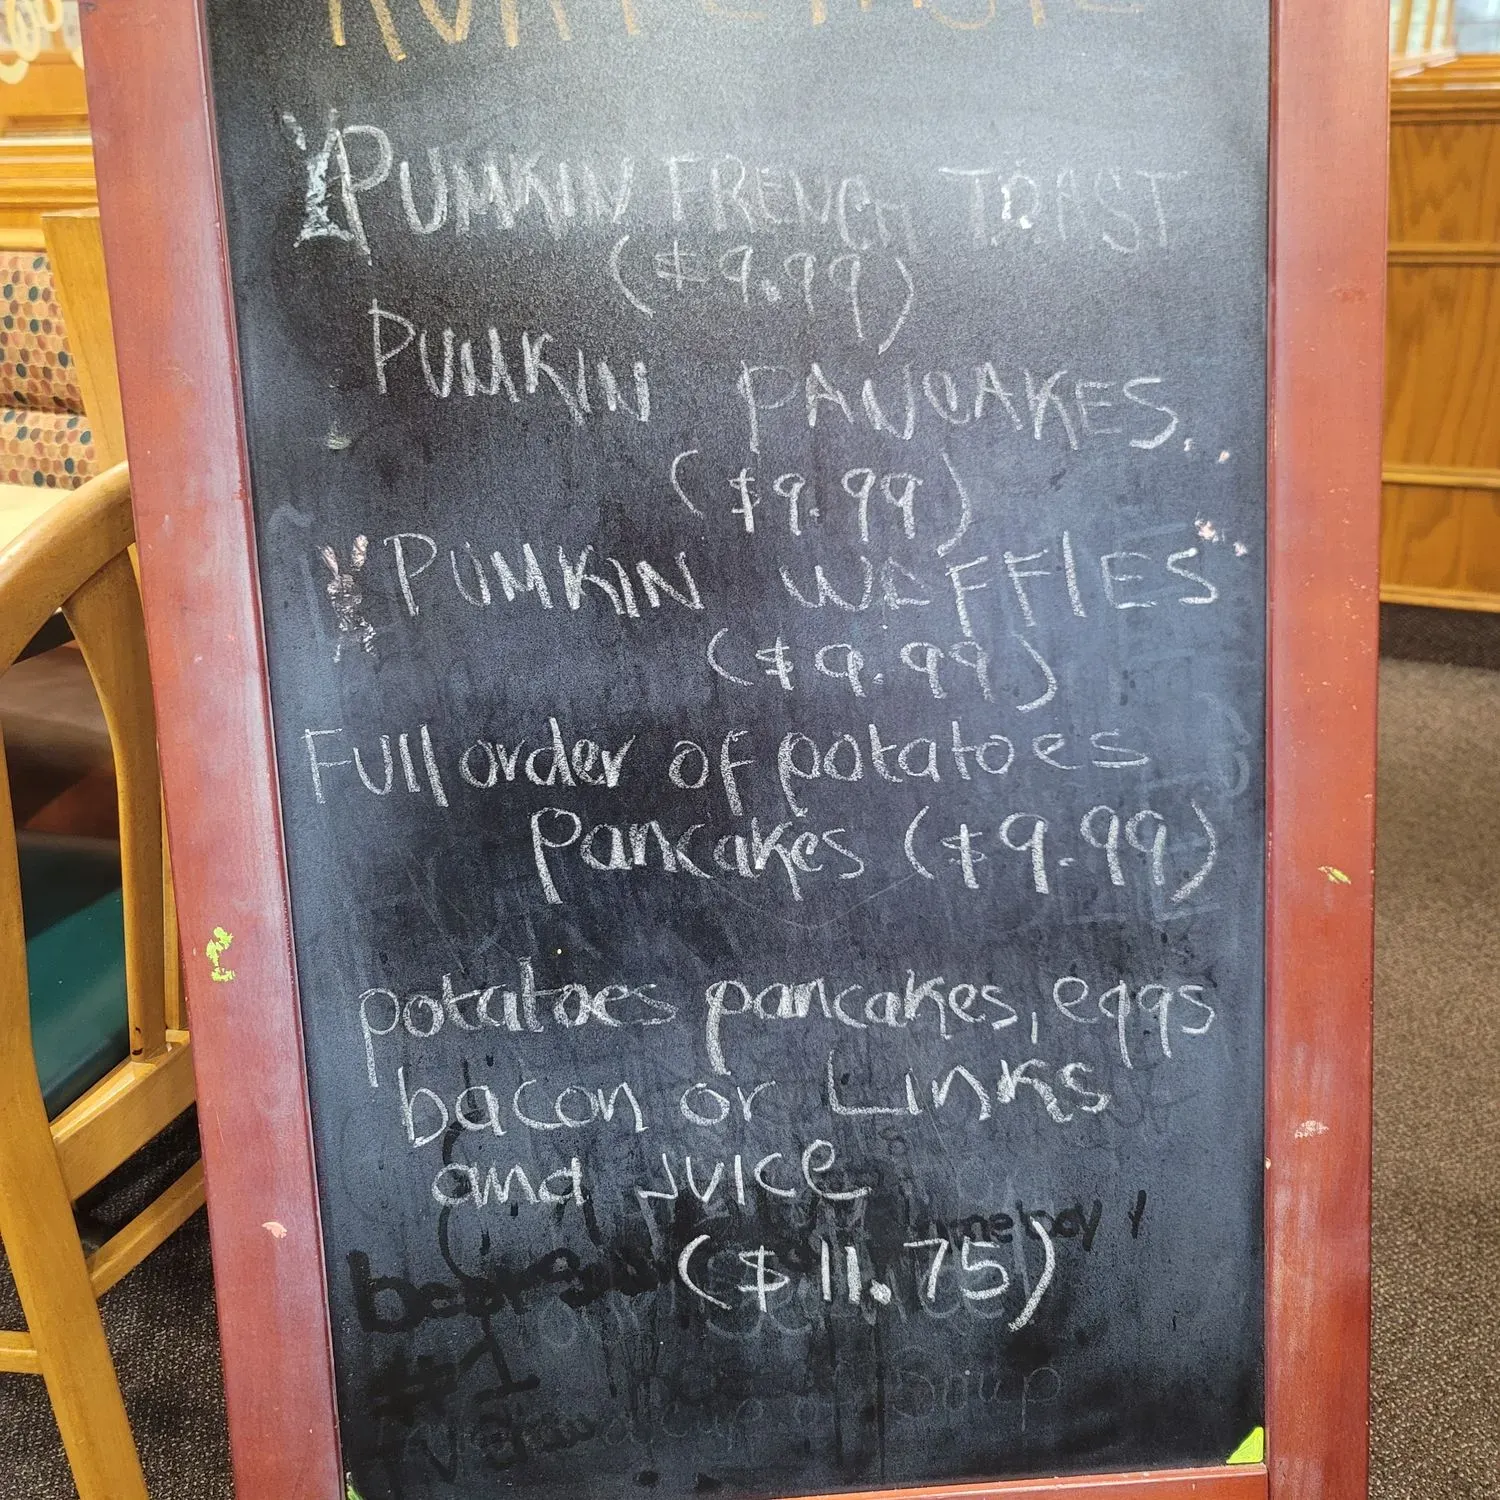 PUMKIN FRENCH TOAST
($9.99)
PUMKIN PANCAKES
($9.99)
PUMKIN WAFFLES
($9.99)
Full order of potatoes
pancakes ($9.99)
potatoes pancakes, eggs
bacon or Links
and Juice
($11.75)
#1
Soup